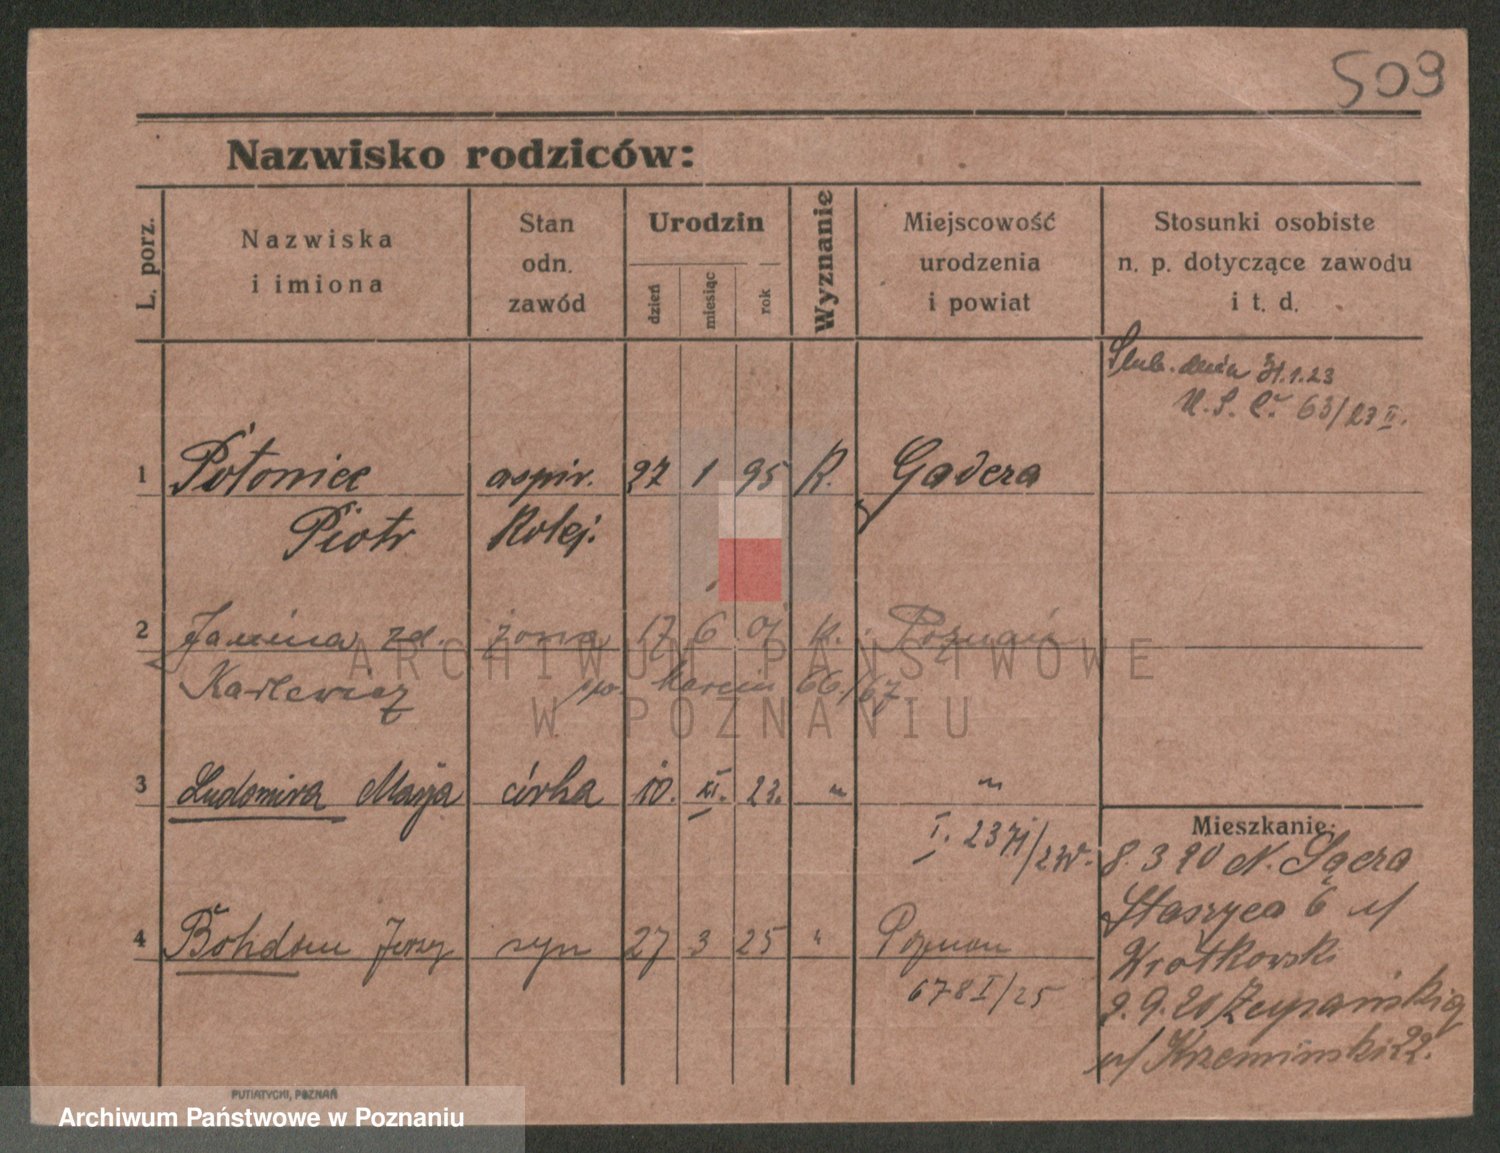 509
Nazwisko rodziców:
L. porz.
Nazwiska
i imiona
Stan
odn.
zawód
Urodzin
dzień
miesiąc
rok
Wyznanie
Miejscowość
urodzenia
i powiat
Stosunki osobiste
n. p. dotyczące zawodu
i t. d.
Ślub. dnia 31.1.23
U. S. C. 63/23 II.
1 Połoniec aspir. 27 1 95 R. Gadera
Piotr Kolej.
2 Janina zd. żona 17 6 01 R. Poznań
Karlewicz Marcin 66/67
3 Ludomira Marja córka 10. XI. 23. " "
I. 2371/23
Mieszkanie:
8. 3 20 N. Sącza
Staszyca 6 u/
4 Bohdan Jerzy syn 27 3 25 " Poznan
Wrotkowski
678 I/25
2. 9. 20 Żupańskiego
u/ Krzemiński 22.
PUTIATYCKI, POZNAŃ
ARCHIWUM PAŃSTWOWE
W POZNANIU
Archiwum Państwowe w Poznaniu